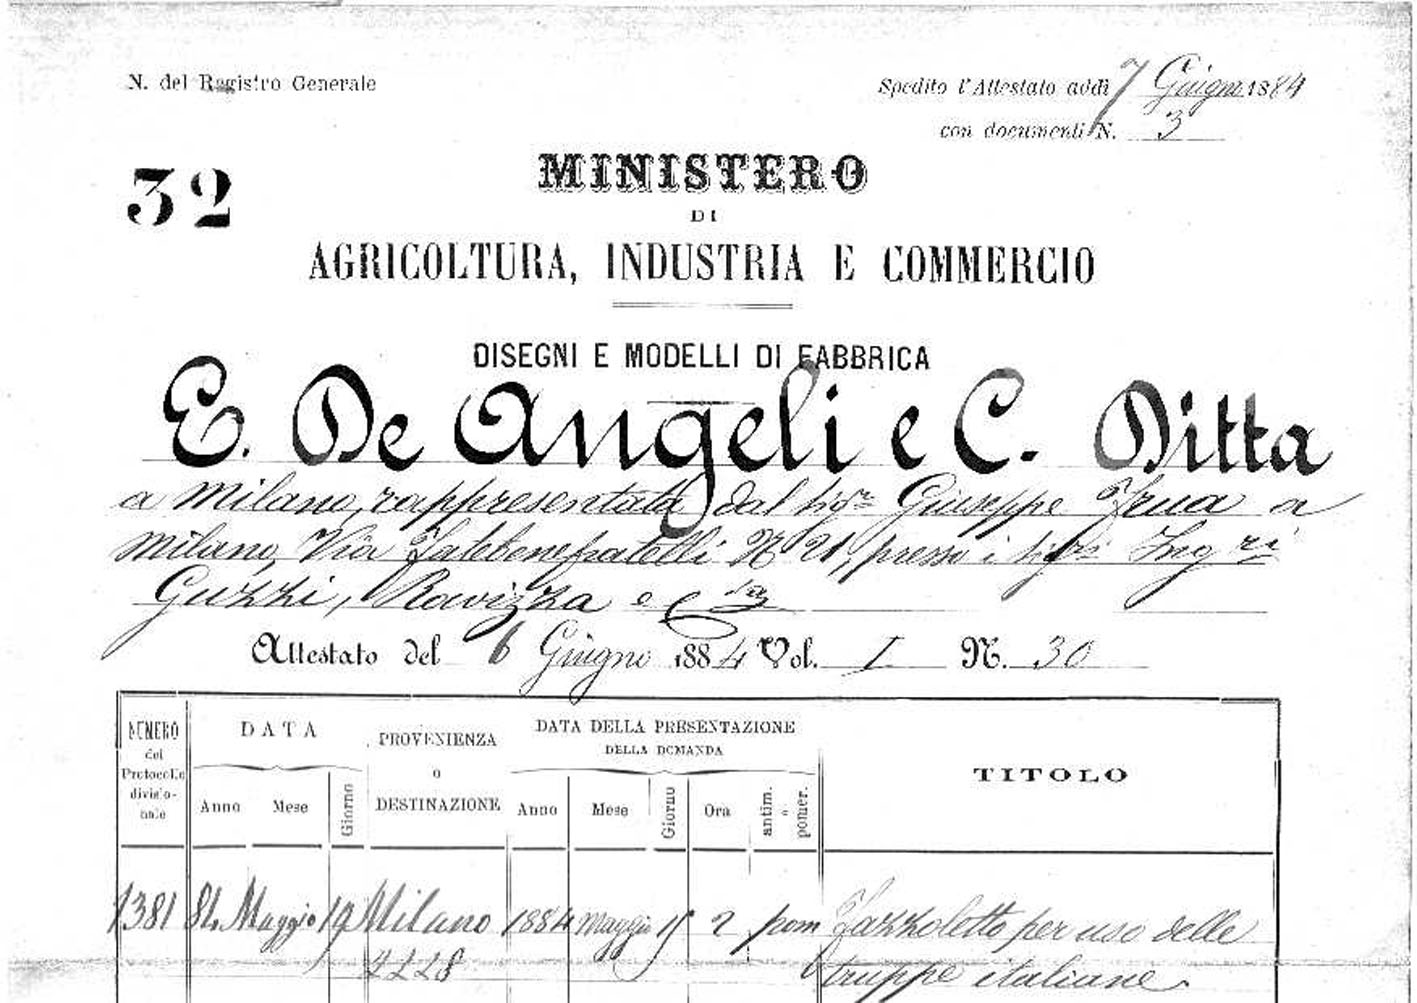 N. del Registro Generale
Spedito l'Attestato addì 7 Giugno 1884
con documenti N. 3
32
MINISTERO
DI
AGRICOLTURA, INDUSTRIA E COMMERCIO
DISEGNI E MODELLI DI FABBRICA
E. De Angeli e C. Ditta
a Milano, rappresentata dal Sigr Giuseppe Frua a
Milano, Via Fatebenefratelli N 21, presso i Sigri Ing ri
Guzzi, Ravizza e
Attestato del 6 Giugno 1884 Vol. I N. 30
NUMERO del Protocollo divisio- nale
DATA
Anno Mese Giorno
PROVENIENZA
o
DESTINAZIONE
DATA DELLA PRESENTAZIONE
DELLA DOMANDA
Anno Mese Giorno Ora antim. o pomer.
TITOLO
1381 84 Maggio 19 Milano 1884 Maggio 15 2 pom Fazzoletto per uso delle
4228 truppe italiane.